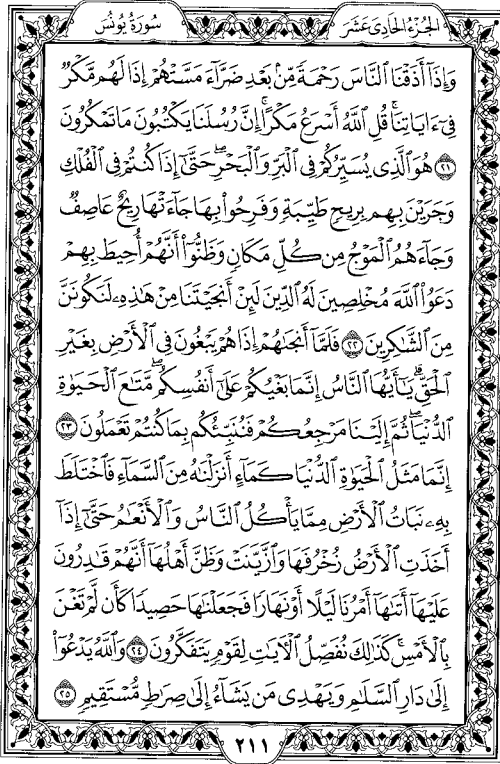 الجُزْءُ الحَادِى عَشَرَ
سُورَةُ يُونُسَ
وَإِذَآ أَذَقْنَا ٱلنَّاسَ رَحْمَةً مِّنۢ بَعْدِ ضَرَّآءَ مَسَّتْهُمْ إِذَا لَهُم مَّكْرٌ
فِىٓ ءَايَاتِنَا ۚ قُلِ ٱللَّهُ أَسْرَعُ مَكْرًا ۚ إِنَّ رُسُلَنَا يَكْتُبُونَ مَا تَمْكُرُونَ
٢١ هُوَ ٱلَّذِى يُسَيِّرُكُمْ فِى ٱلْبَرِّ وَٱلْبَحْرِ ۖ حَتَّىٰٓ إِذَا كُنتُمْ فِى ٱلْفُلْكِ
وَجَرَيْنَ بِهِم بِرِيحٍ طَيِّبَةٍ وَفَرِحُوا۟ بِهَا جَآءَتْهَا رِيحٌ عَاصِفٌ
وَجَآءَهُمُ ٱلْمَوْجُ مِن كُلِّ مَكَانٍ وَظَنُّوٓا۟ أَنَّهُمْ أُحِيطَ بِهِمْ
دَعَوُا۟ ٱللَّهَ مُخْلِصِينَ لَهُ ٱلدِّينَ لَئِنْ أَنجَيْتَنَا مِنْ هَٰذِهِۦ لَنَكُونَنَّ
مِنَ ٱلشَّٰكِرِينَ ٢٢ فَلَمَّآ أَنجَىٰهُمْ إِذَا هُمْ يَبْغُونَ فِى ٱلْأَرْضِ بِغَيْرِ
ٱلْحَقِّ ۗ يَٰٓأَيُّهَا ٱلنَّاسُ إِنَّمَا بَغْيُكُمْ عَلَىٰٓ أَنفُسِكُم ۖ مَّتَٰعَ ٱلْحَيَوٰةِ
ٱلدُّنْيَا ۖ ثُمَّ إِلَيْنَا مَرْجِعُكُمْ فَنُنَبِّئُكُم بِمَا كُنتُمْ تَعْمَلُونَ ٢٣
إِنَّمَا مَثَلُ ٱلْحَيَوٰةِ ٱلدُّنْيَا كَمَآءٍ أَنزَلْنَٰهُ مِنَ ٱلسَّمَآءِ فَٱخْتَلَطَ
بِهِۦ نَبَاتُ ٱلْأَرْضِ مِمَّا يَأْكُلُ ٱلنَّاسُ وَٱلْأَنْعَٰمُ حَتَّىٰٓ إِذَآ
أَخَذَتِ ٱلْأَرْضُ زُخْرُفَهَا وَٱزَّيَّنَتْ وَظَنَّ أَهْلُهَآ أَنَّهُمْ قَٰدِرُونَ
عَلَيْهَآ أَتَىٰهَآ أَمْرُنَا لَيْلًا أَوْ نَهَارًا فَجَعَلْنَٰهَا حَصِيدًا كَأَن لَّمْ تَغْنَ
بِٱلْأَمْسِ ۚ كَذَٰلِكَ نُفَصِّلُ ٱلْءَايَٰتِ لِقَوْمٍ يَتَفَكَّرُونَ ٢٤ وَٱللَّهُ يَدْعُوٓا۟
إِلَىٰ دَارِ ٱلسَّلَٰمِ وَيَهْدِى مَن يَشَآءُ إِلَىٰ صِرَٰطٍ مُّسْتَقِيمٍ ٢٥
٢١١